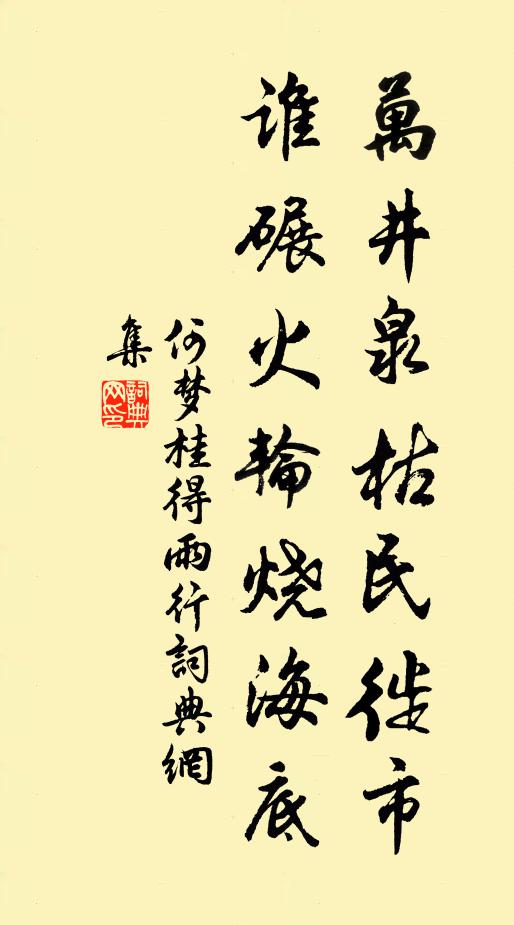 萬井泉枯民徙市
谁碾火輪烧海底
何梦桂得雨行詞典網
集
詞典网印